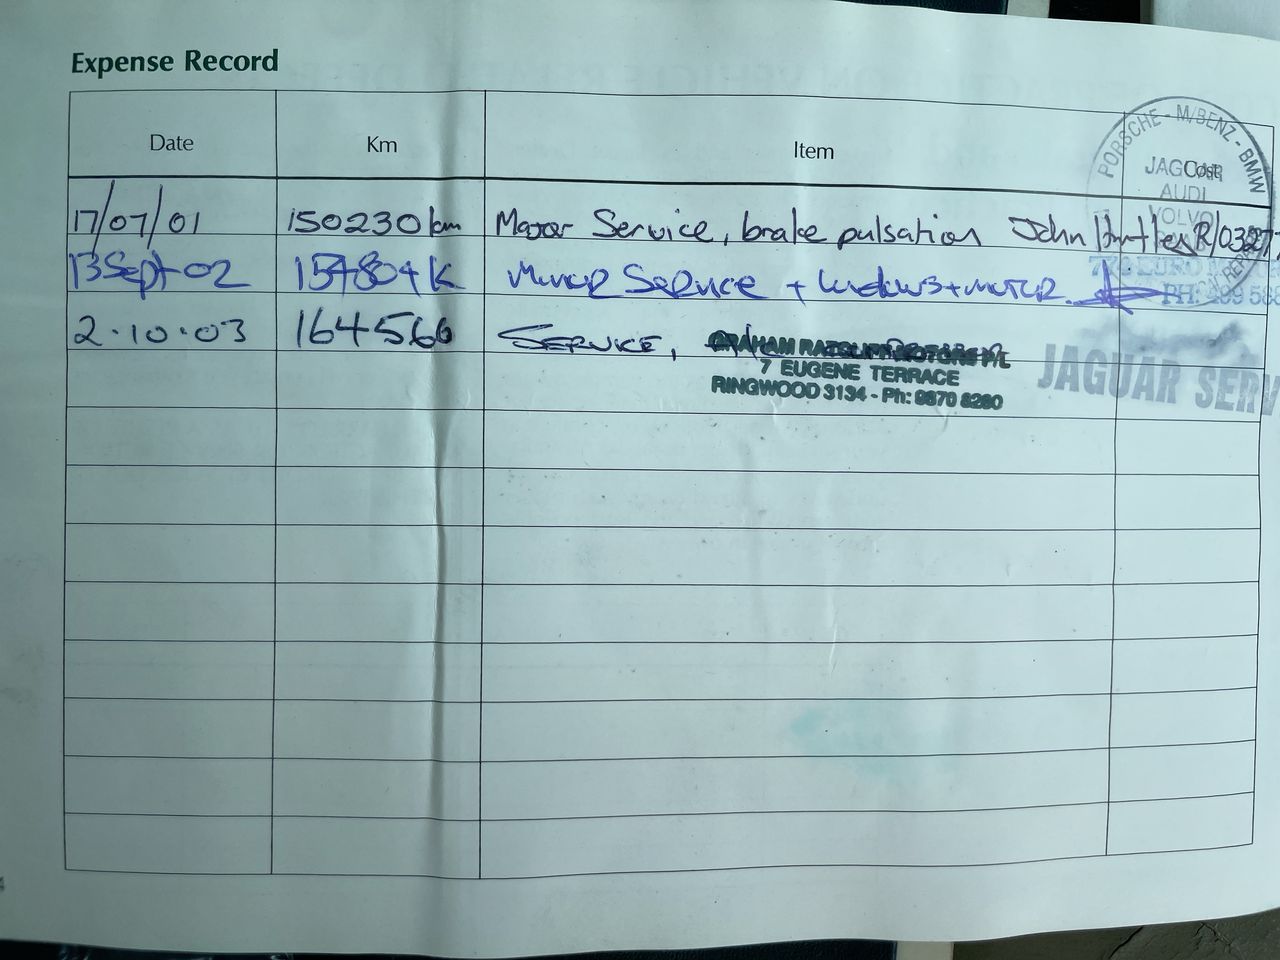 Expense Record
Date Km Item Cost
17/07/01 150230 km Major Service, brake pulsation John
13 Sept 02 154804 K Minor Service + windows + motor
2.10.03 164566 SERVICE,
PORSCHE - M/BENZ - BMW
JAGUAR
AUDI
VOLVO
PH:
GRAHAM MOTORS P/L
7 EUGENE TERRACE
RINGWOOD 3134 - Ph: 9870 8280
JAGUAR SERV